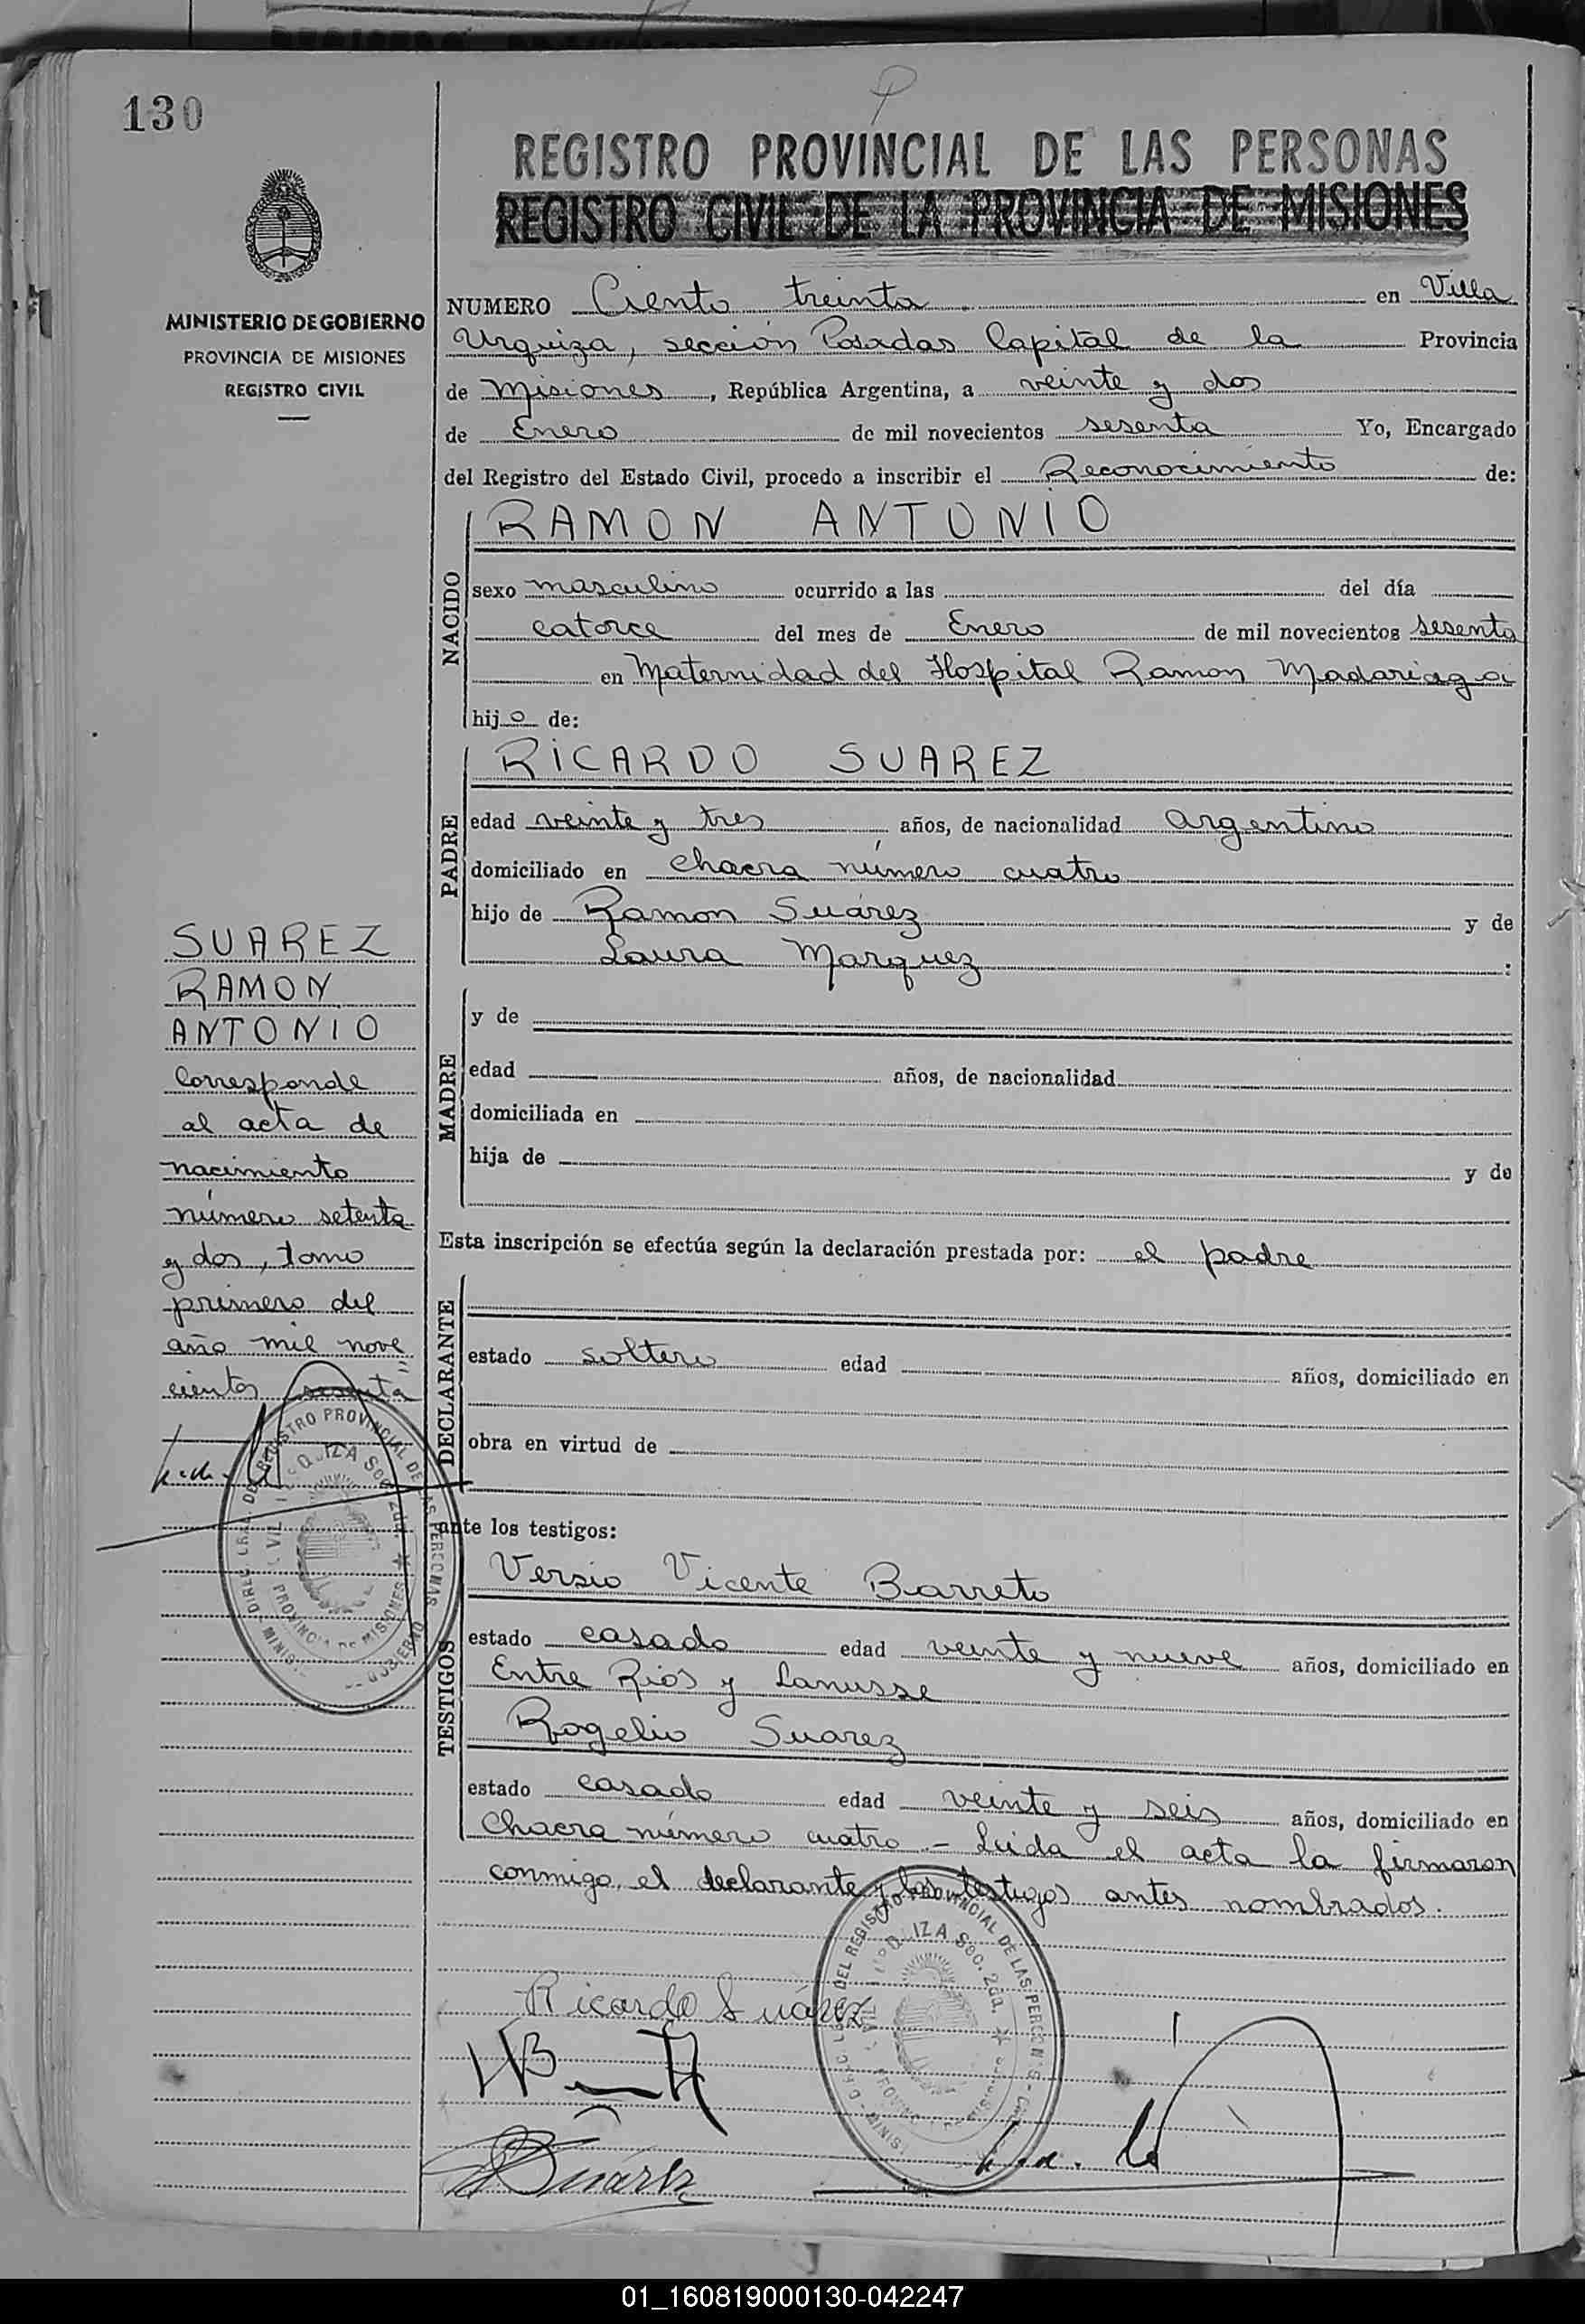 130
REGISTRO PROVINCIAL DE LAS PERSONAS
REGISTRO CIVIL DE LA PROVINCIA DE MISIONES
MINISTERIO DE GOBIERNO
PROVINCIA DE MISIONES
REGISTRO CIVIL
NUMERO Ciento treinta en Villa
Urquiza, sección Posadas Capital de la Provincia
de Misiones, República Argentina, a veinte y dos
de Enero de mil novecientos sesenta Yo, Encargado
del Registro del Estado Civil, procedo a inscribir el Reconocimiento de:
NACIDO
RAMON ANTONIO
sexo masculino ocurrido a las del día
catorce del mes de Enero de mil novecientos sesenta
en Maternidad del Hospital Ramon Madariaga
hijo de:
PADRE
RICARDO SUAREZ
edad veinte y tres años, de nacionalidad Argentino
domiciliado en chacra número cuatro
hijo de Ramon Suárez y de
Laura Marquez :
MADRE
y de
edad años, de nacionalidad
domiciliada en
hija de y de
Esta inscripción se efectúa según la declaración prestada por: el padre
DECLARANTE
estado soltero edad años, domiciliado en
obra en virtud de
ante los testigos:
TESTIGOS
Versio Vicente Barreto
estado casado edad veinte y nueve años, domiciliado en
Entre Rios y Lanusse
Rogelio Suarez
estado casado edad veinte y seis años, domiciliado en
Chacra número cuatro.- Leida el acta la firmaron
conmigo, el declarante y los testigos antes nombrados.
Ricardo Suárez
Suárez
SUAREZ
RAMON
ANTONIO
Corresponde
al acta de
nacimiento
número setenta
y dos, tomo
primero del
año mil nove
cientos sesenta
REGISTRO PROVINCIAL DE LAS PERSONAS
PROVINCIA DE MISIONES
DEL REGISTRO PROVINCIAL DE LAS PERSONAS
Sec. 2da.
01_160819000130-042247